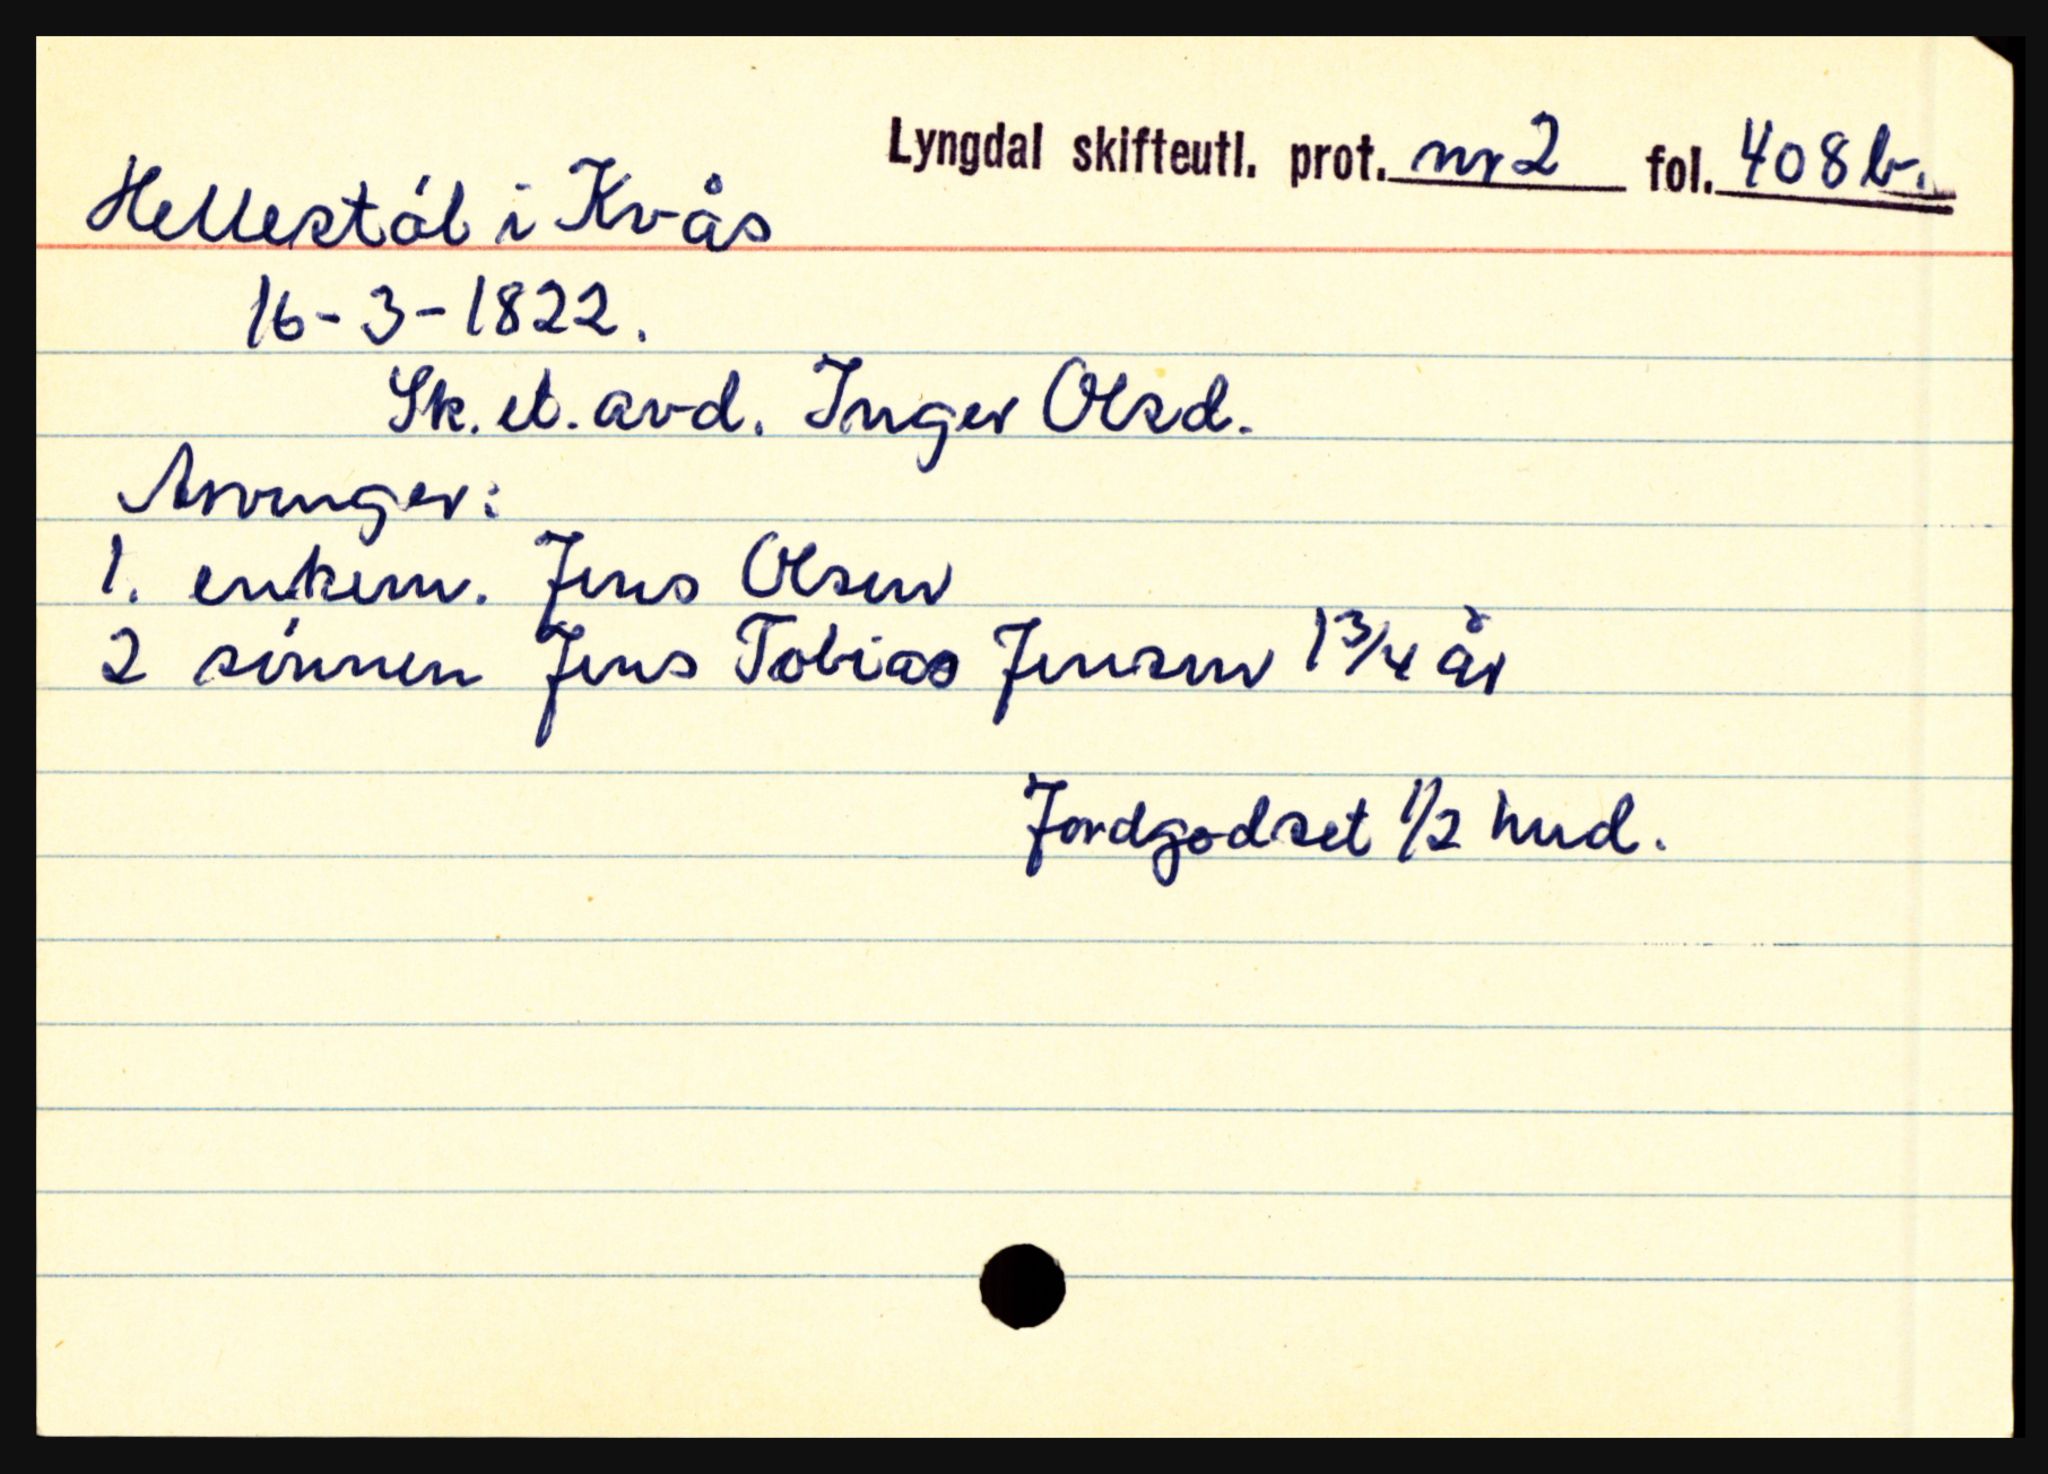 Lyngdal skifteutl. prot. nr 2 fol. 408 b.
Hellestøl i Kvås
16-3-1822.
Sk. et. avd. Inger Olsd.
Arvinger:
1. enkem. Jens Olsen
2 sønnen Jens Tobias Jensen 1 3/4 år
Jordgodset 1/2 hud.